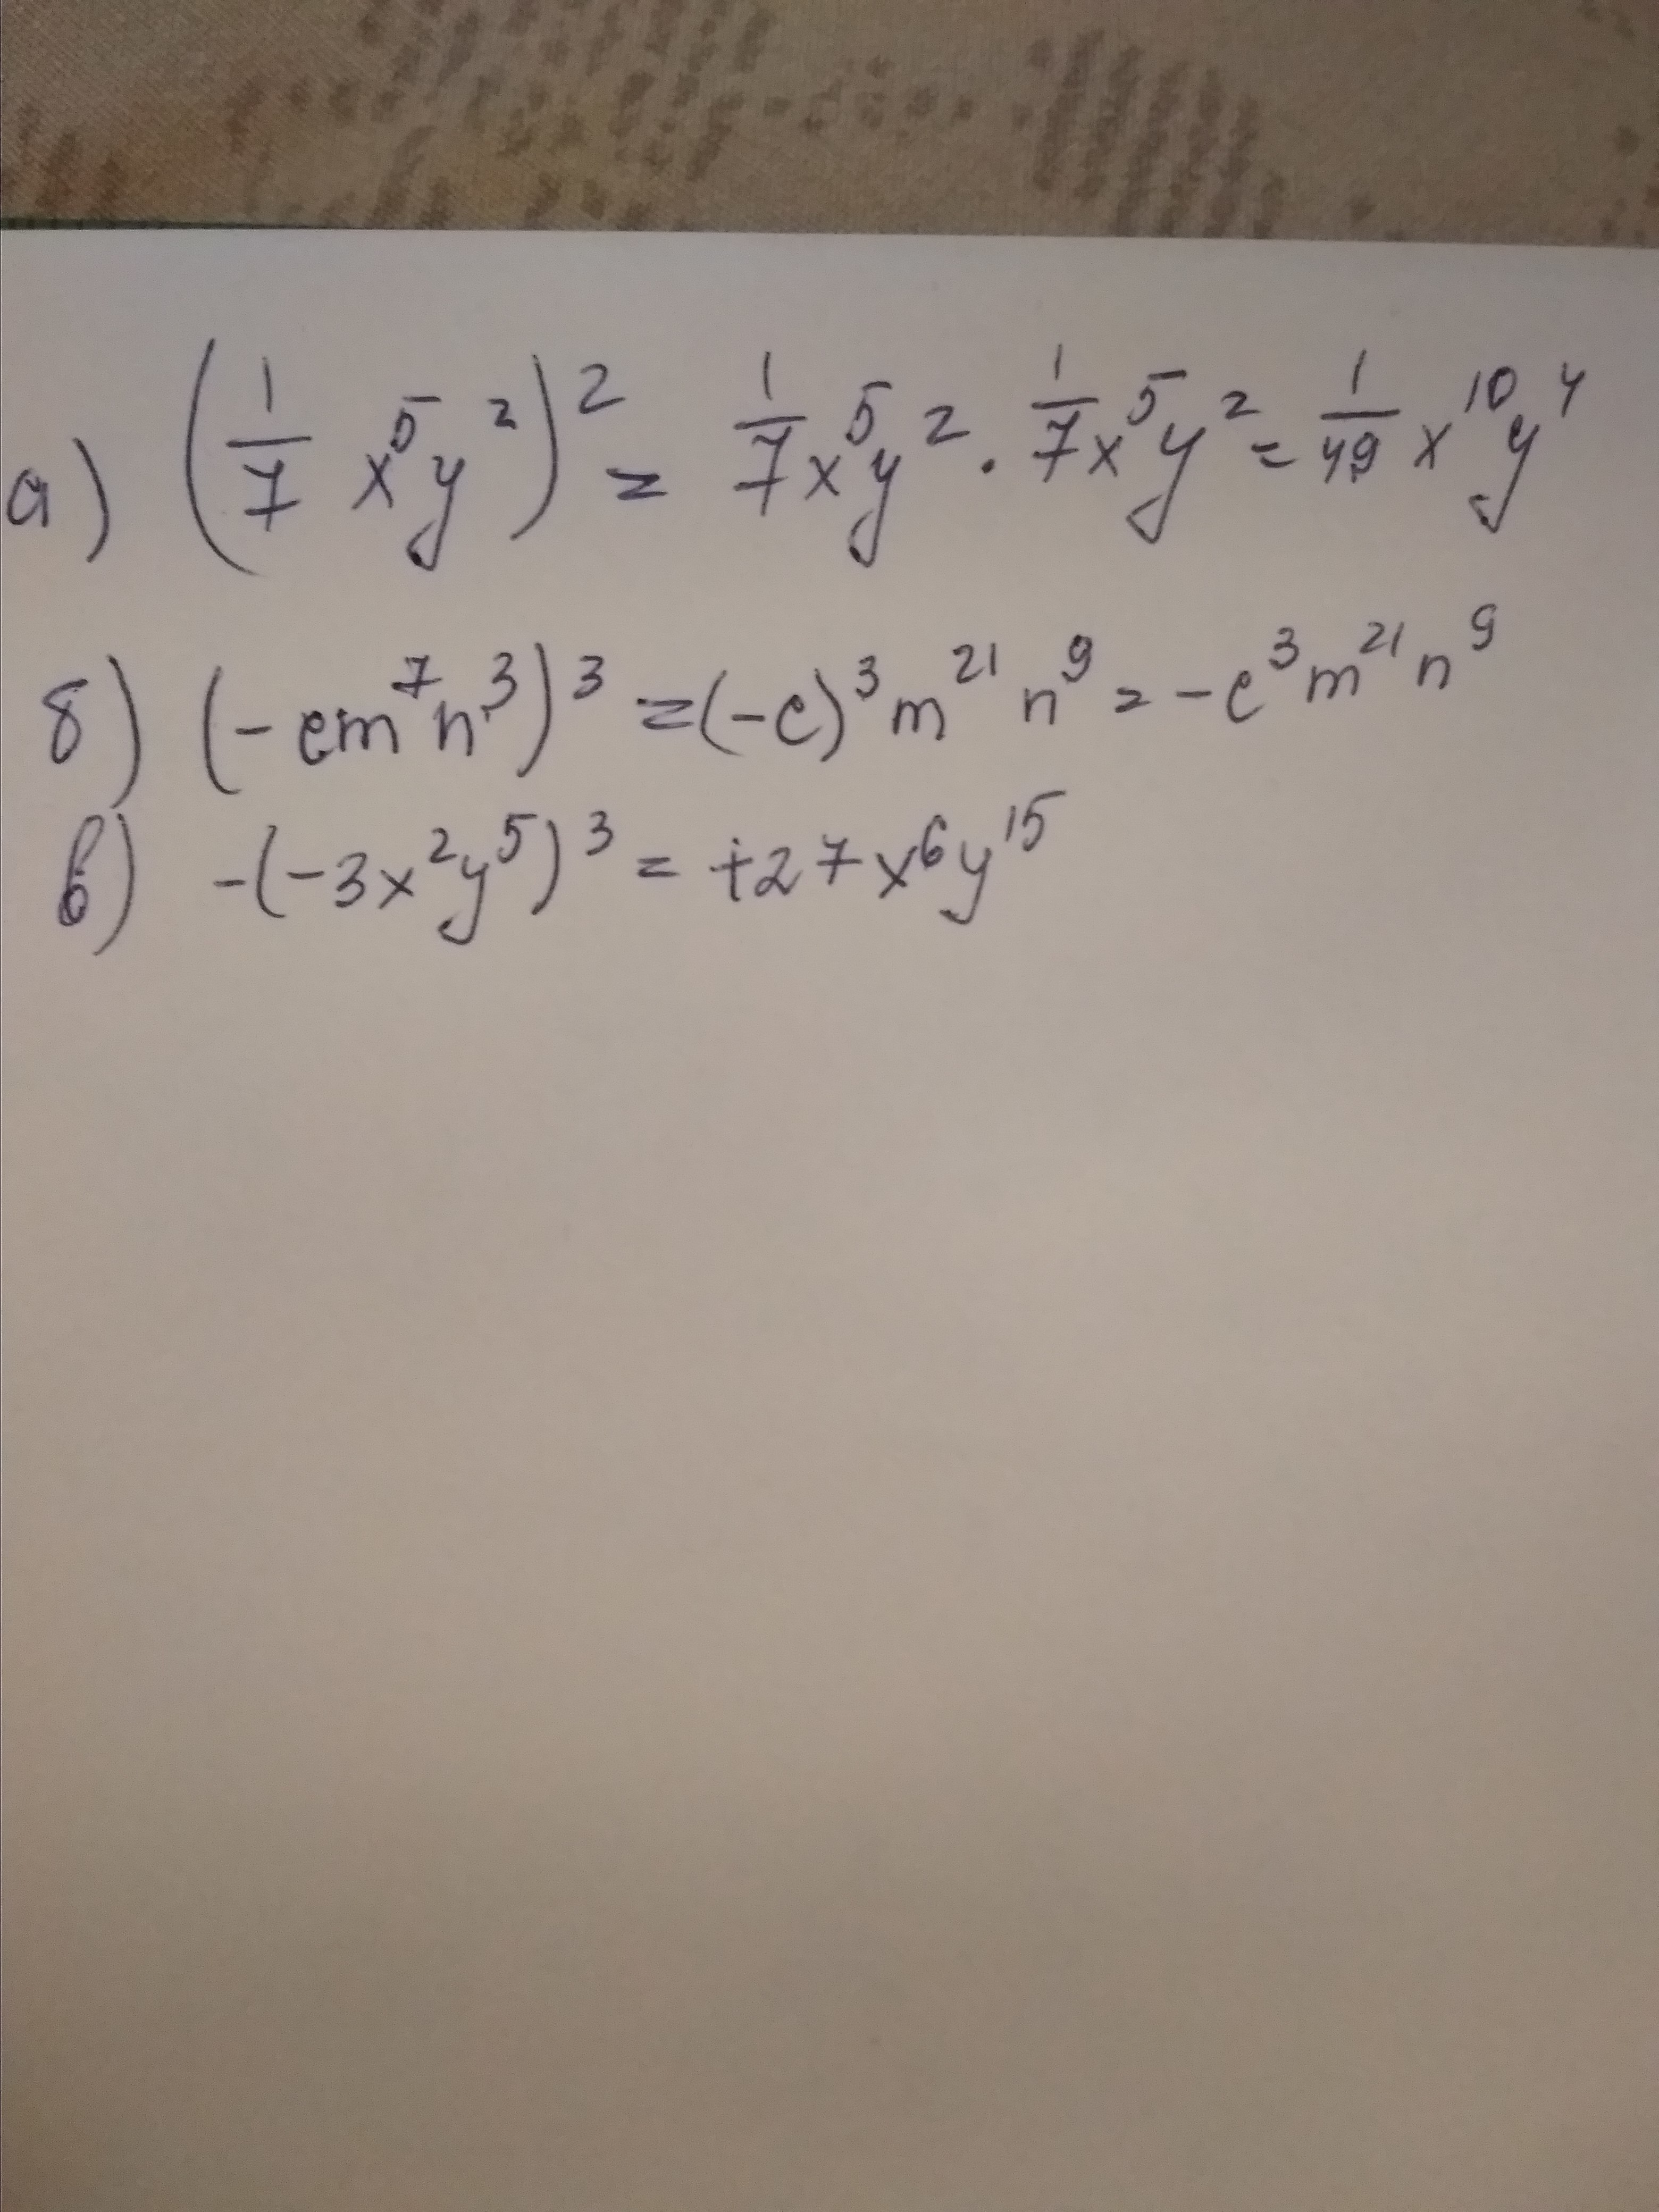 а) (1/7 x⁵y²)² = 1/7 x⁵y² · 1/7 x⁵y² = 1/49 x¹⁰y⁴
б) (-cm⁷n³)³ = (-c)³m²¹n⁹ = -c³m²¹n⁹
в) -(-3x²y⁵)³ = +27x⁶y¹⁵